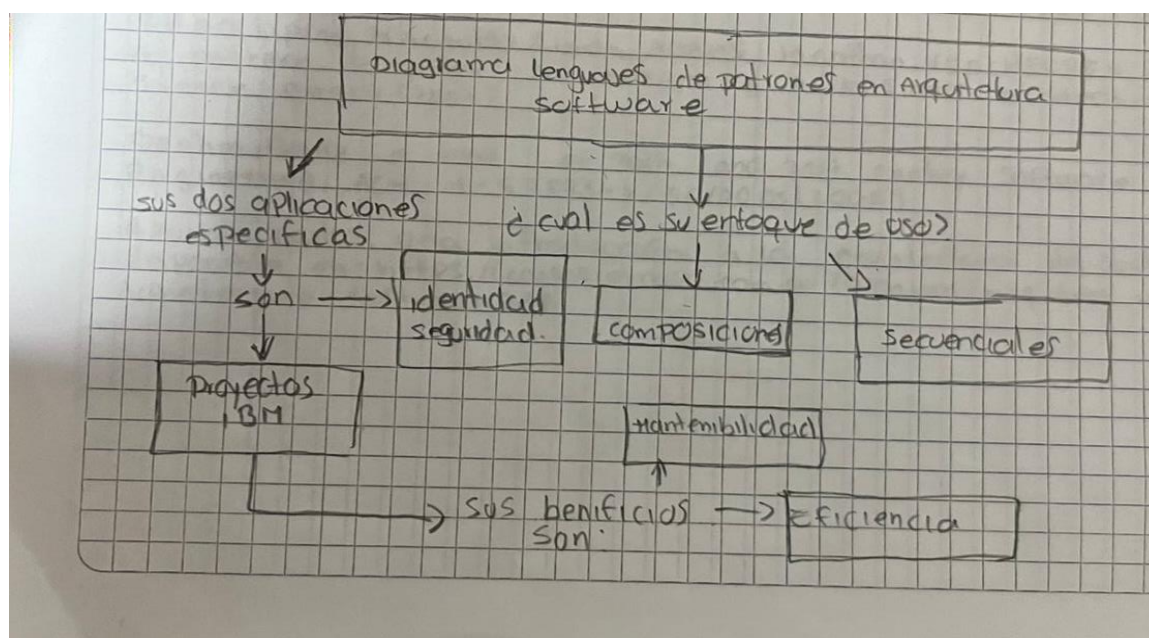 Diagrama lenguajes de patrones en Arquitetura
software
sus dos aplicaciones
especificas
¿ cual es su enfoque de uso?
son
identidad
seguridad.
composiciones
secuenciales
Proyectos
IBM
Mantenibilidad
sus benificios
son:
Eficiencia